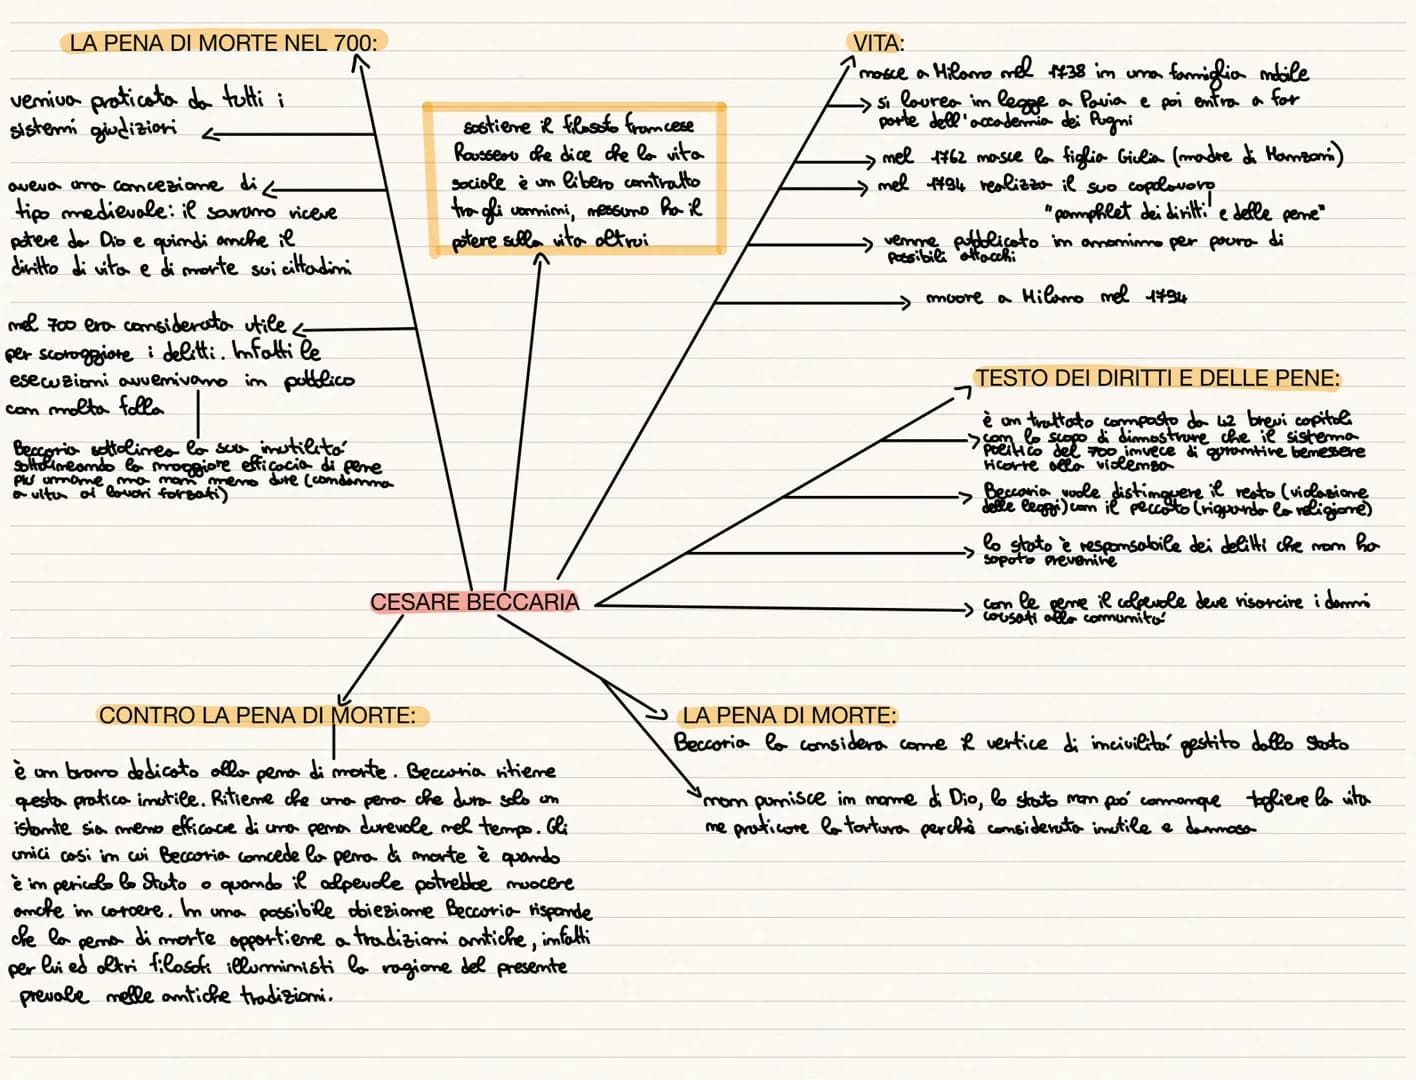 LA PENA DI MORTE NEL 700:
veniva praticata da tutti i
sistemi giudiziari
aveva una concezione di
tipo medievale: il sovrano riceve
potere da Dio e quindi anche il
diritto di vita e di morte sui cittadini
nel 700 era considerata utile
per scoraggiare i delitti. Infatti le
esecuzioni avvenivano in pubblico
con molta folla
Beccaria sottolinea la sua inutilità
sottolineando la maggiore efficacia di pene
più umane ma non meno dure (condanna
a vita ai lavori forzati)
sostiene il filosofo francese
Rousseau che dice che la vita
sociale è un libero contratto
tra gli uomini, nessuno ha il
potere sulla vita altrui
VITA:
nasce a Milano nel 1738 in una famiglia nobile
si laurea in legge a Pavia e poi entra a far
parte dell'accademia dei Pugni
nel 1762 nasce la figlia Giulia (madre di Manzoni)
nel 1794 realizza il suo capolavoro
"pamphlet dei diritti e delle pene"
venne pubblicato in anonimo per paura di
possibili attacchi
muore a Milano nel 1794
TESTO DEI DIRITTI E DELLE PENE:
è un trattato composto da 42 brevi capitoli
con lo scopo di dimostrare che il sistema
politico del 700 invece di garantire benessere
ricorre alla violenza
Beccaria vuole distinguere il reato (violazione
delle leggi) con il peccato (riguarda la religione)
lo stato è responsabile dei delitti che non ha
saputo prevenire
con le pene il colpevole deve risarcire i danni
causati alla comunità
CESARE BECCARIA
CONTRO LA PENA DI MORTE:
è un brano dedicato alla pena di morte. Beccaria ritiene
questa pratica inutile. Ritiene che una pena che dura solo un
istante sia meno efficace di una pena durevole nel tempo. Gli
unici casi in cui Beccaria concede la pena di morte è quando
è in pericolo lo Stato o quando il colpevole potrebbe nuocere
anche in carcere. In una possibile obiezione Beccaria risponde
che la pena di morte appartiene a tradizioni antiche, infatti
per lui ed altri filosofi illuministi la ragione del presente
prevale nelle antiche tradizioni.
LA PENA DI MORTE:
Beccaria la considera come il vertice di inciviltà gestito dallo Stato
non punisce in nome di Dio, lo stato non può comunque togliere la vita
ne praticare la tortura perchè considerata inutile e dannosa